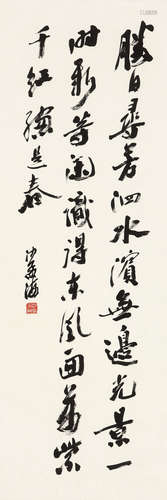 勝日尋芳泗水濱無邊光景一
時新等閑識得東風面萬紫
千紅總是春
沙孟海